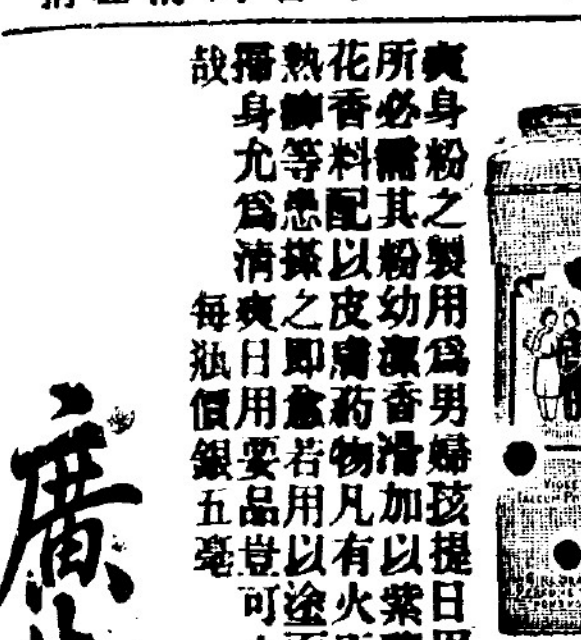 爽身粉之製用為男婦孩提日
所必需其粉幼潔香滑加以紫
花香料配以皮膚葯物凡有火
熱痱等患搽之即愈若用以塗
搨身允為清爽日用要品豈可
哉 每瓶價銀五毫
廣
VIOLE
TALCUM P